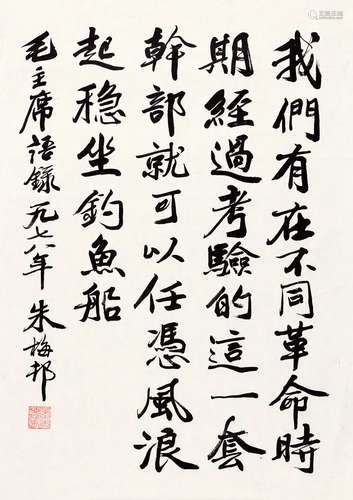 我們有在不同革命時
期經過考驗的這一套
幹部就可以任憑風浪
起穩坐釣魚船
毛主席語錄一九七八年 朱梅邨